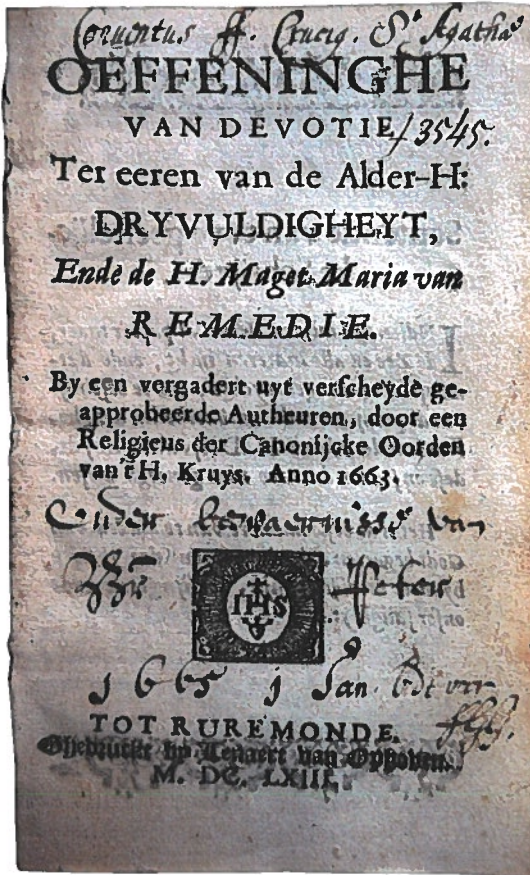 Conventus ff. Crucig. S. Agathae
OEFFENINGHE
VAN DEVOTIE/3545.
Ter eeren van de Alder-H:
DRYVULDIGHEYT,
Ende de H. Maget Maria van
REMEDIE.
By een vergadert uyt verscheyde ge-
approbeerde Autheuren, door een
Religieus der Canonijcke Oorden
van't H. Kruys. Anno 1663.
Onder bewaernisse van
Peter
IHS
1665 1 Jan.
TOT RUREMONDE.
Ghedruckt by Lenaert van Ophoven.
M. DC. LXIII.